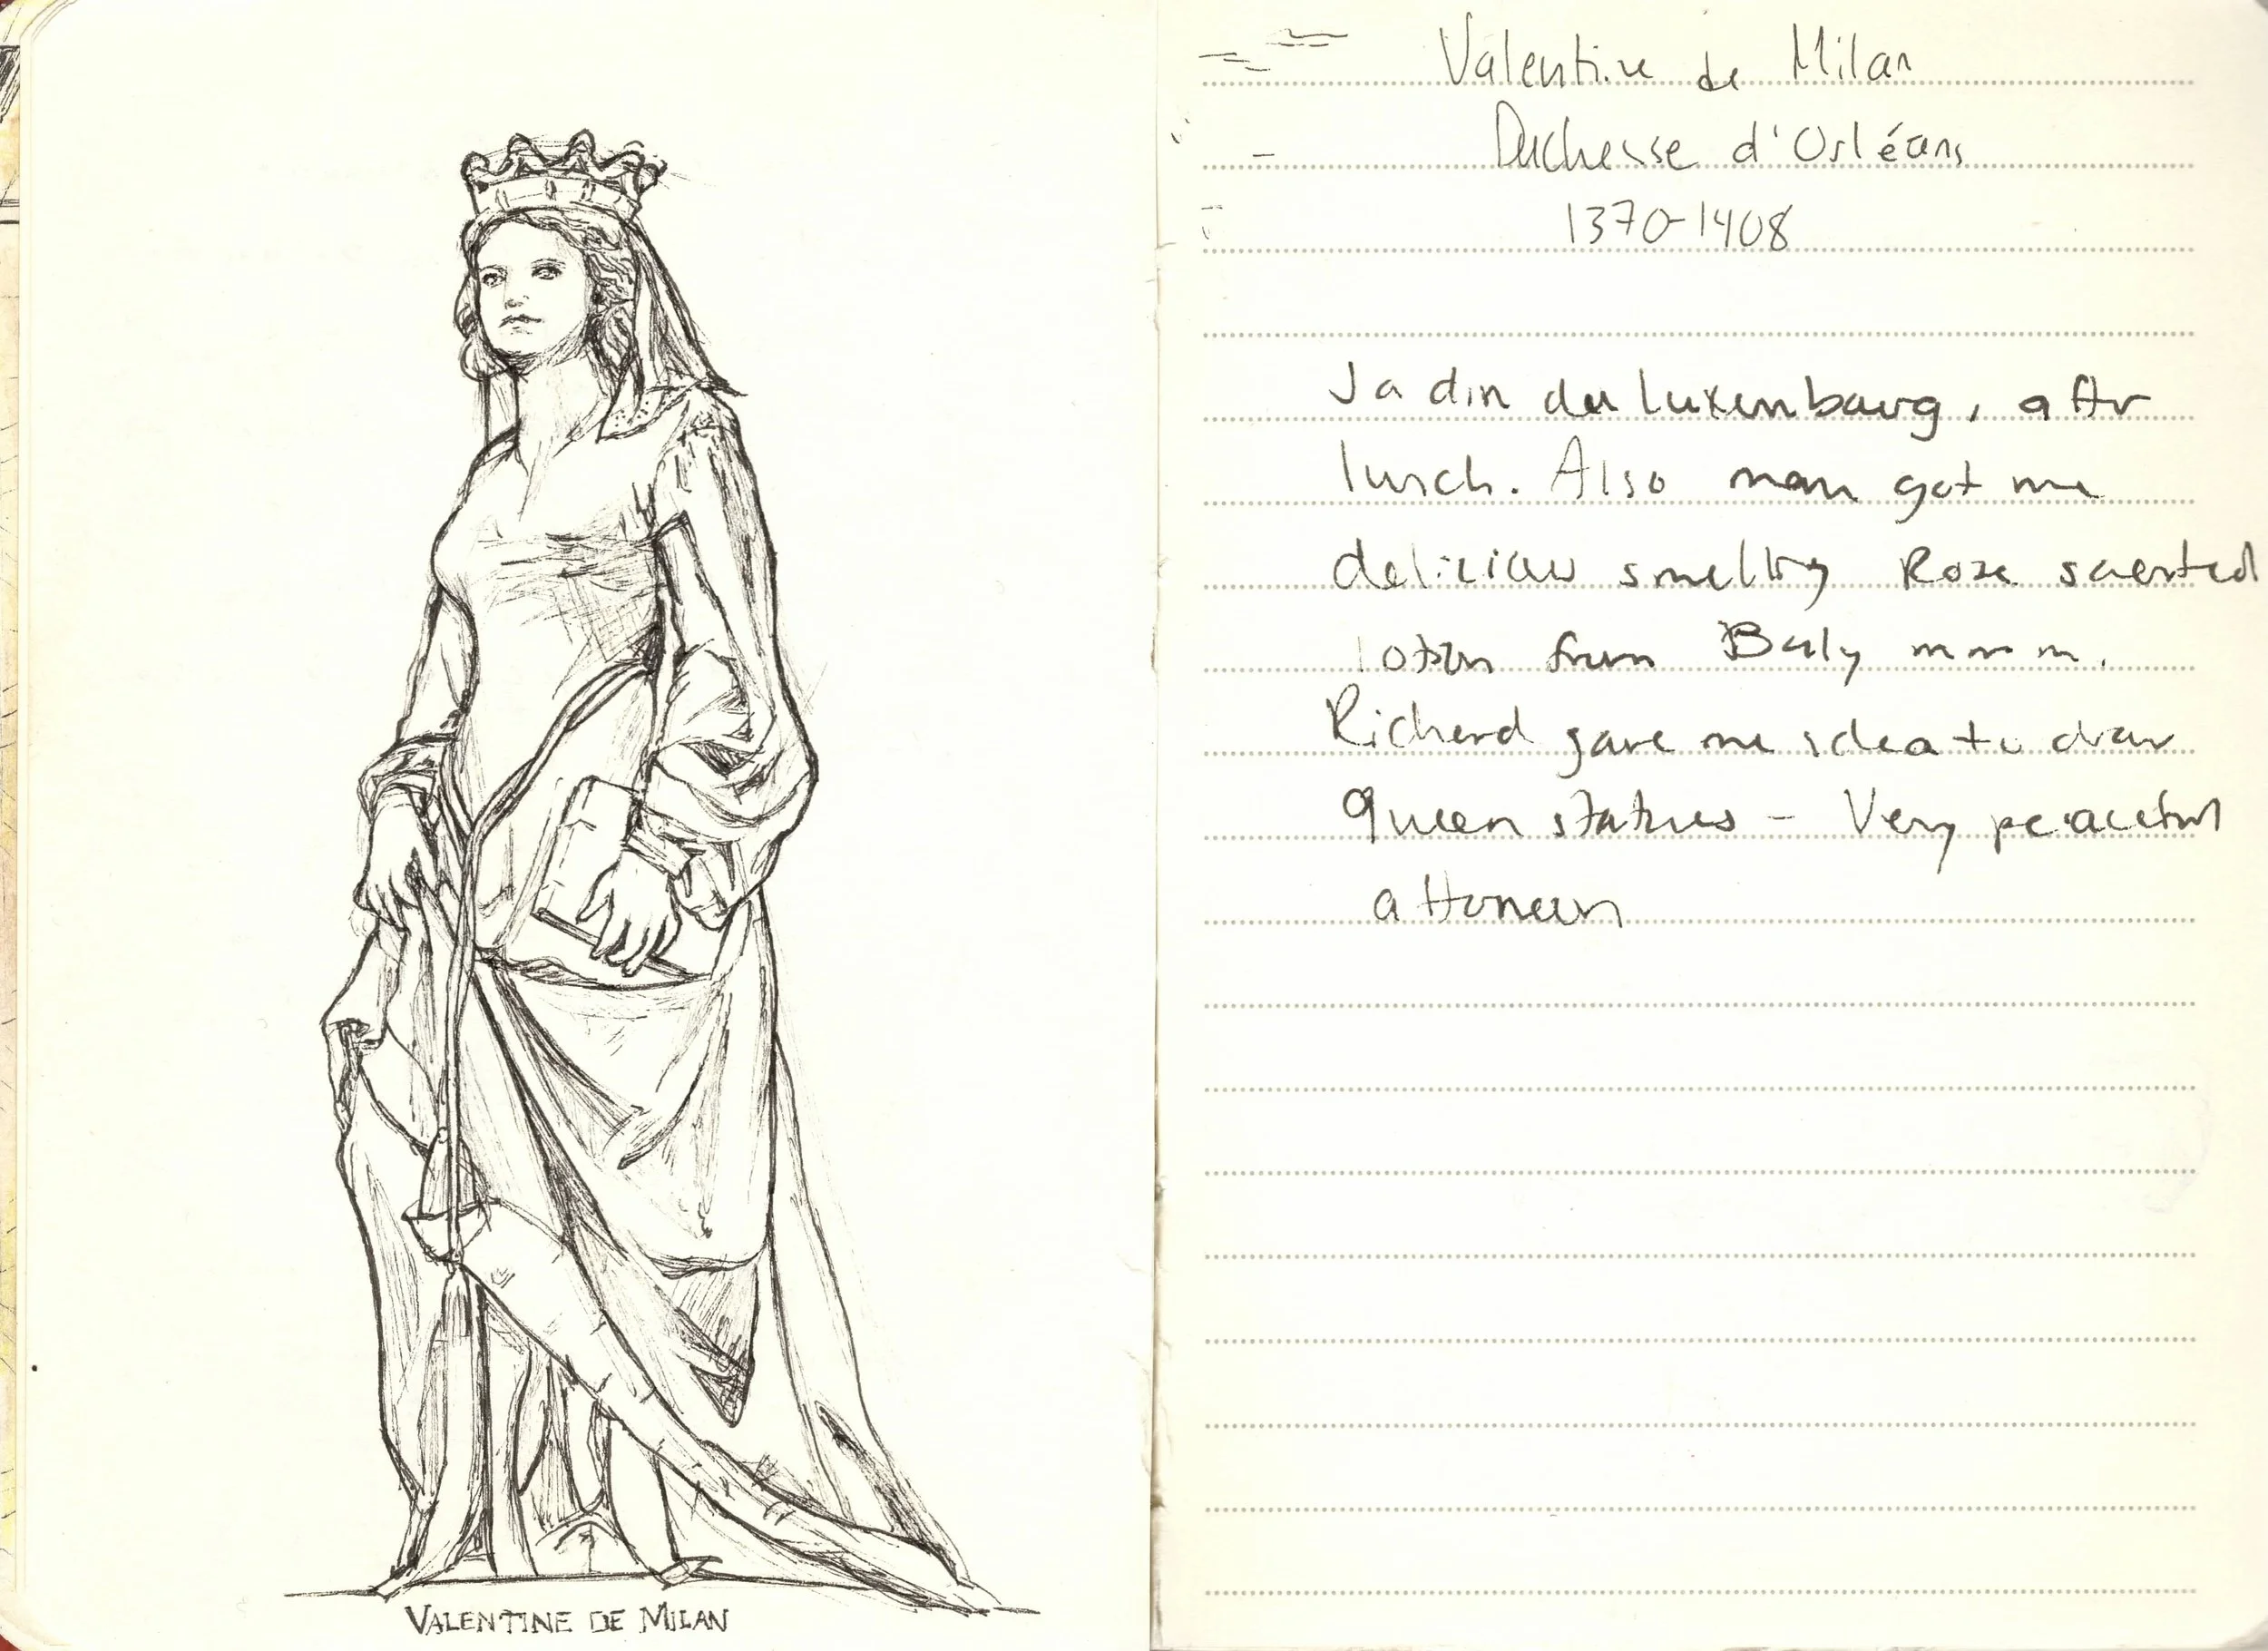 Valentine de Milan
Duchesse d'Orléans
1370-1408
Jadin du Luxembourg, after
lunch. Also mom got me
delicious smelling Rose scented
lotion from Buly mmm.
Richard gave me idea to draw
Queen statues - Very peaceful
afternoon
VALENTINE DE MILAN